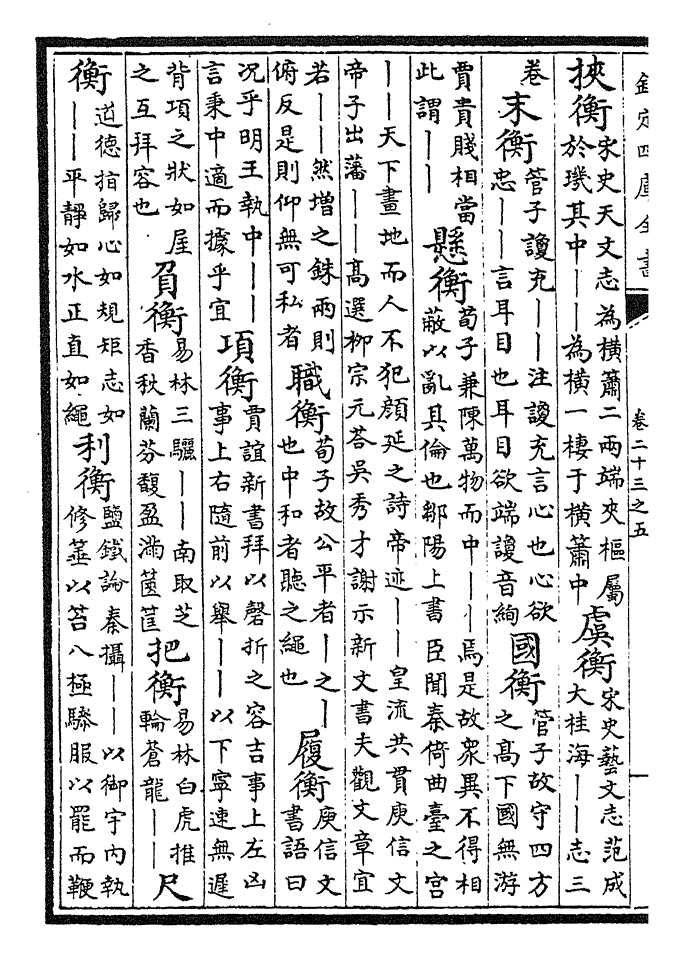 欽定四庫全書
卷二十三之五
挾衡 宋史天文志為横簫二兩端夾樞屬
於璣其中——為横一棲于横簫中
虞衡 宋史藝文志范成
大桂海——志三
卷
末衡 管子謏充——注謏充言心也心欲
忠——言耳目也耳目欲端謏音絢
國衡 管子故守四方
之髙下國無游
賈貴賤相當
此謂——
懸衡 荀子兼陳萬物而中——焉是故衆異不得相
蔽以亂其倫也鄒陽上書臣聞秦倚曲臺之宫
——天下畫地而人不犯顔延之詩帝迹——皇流共貫庾信文
帝子出藩——髙選柳宗元荅吳秀才謝示新文書夫觀文章宜
若——然增之銖兩則
俯反是則仰無可私者
職衡 荀子故公平者—之—
也中和者聽之繩也
履衡 庾信文
書語曰
况乎明王執中——
言秉中適而據乎宜
項衡 賈誼新書拜以磬折之容吉事上左凶
事上右隨前以舉——以下寧速無遲
背項之狀如屋
之互拜容也
負衡 易林三驪——南取芝
香秋蘭芬馥盈滿篋筐
把衡 易林白虎推
輪蒼龍——
尺
衡 道德指歸心如規矩志如
——平靜如水正直如繩
利衡 鹽鐵論秦攝——以御宇内執
修箠以笞八極驂服以罷而鞭